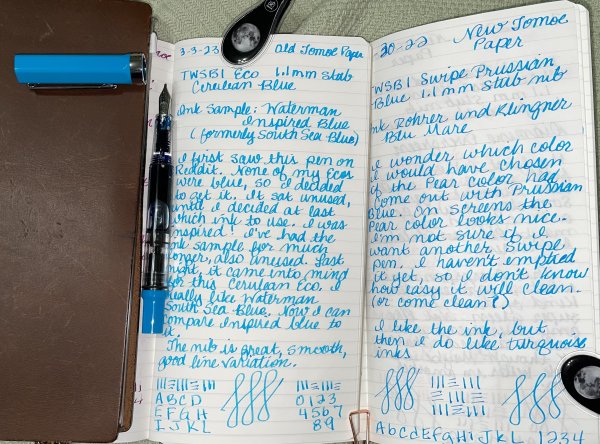 3-3-23
Old Tomoe Paper
TWSBI Eco 1.1mm Stub
Cerulean Blue
Ink Sample: Waterman
Inspired Blue
(formerly South Sea Blue)
I first saw this pen on
Reddit. None of my Ecos
were blue, so I decided
to get it. It sat unused,
until I decided at last
which ink to use. I was
inspired! I've had the
ink sample for much
longer, also unused. Last
night it came into mind
for this Cerulean Eco. I
really like Waterman
South Sea Blue. Now I can
compare Inspired blue to
it.
The nib is great, smooth,
good line variation.
A B C D
E F G H
I J K L
0 1 2 3
4 5 6 7
8 9
20-22
New Tomoe
Paper
TWSBI Swipe Prussian
Blue 1.1mm stub nib
Ink Rohrer und Klingner
Blu Mare
I wonder which color
I would have chosen
if the Pear color had
come out with Prussian
Blue. On screens the
Pear color looks nice.
I'm not sure if I
want another Swipe
pen. I haven't emptied
it yet, so I don't know
how easy it will clean.
(or come clean?)
I like the ink, but
then I do like turquoise
inks
A b c d E f g H i J k L
1 2 3 4